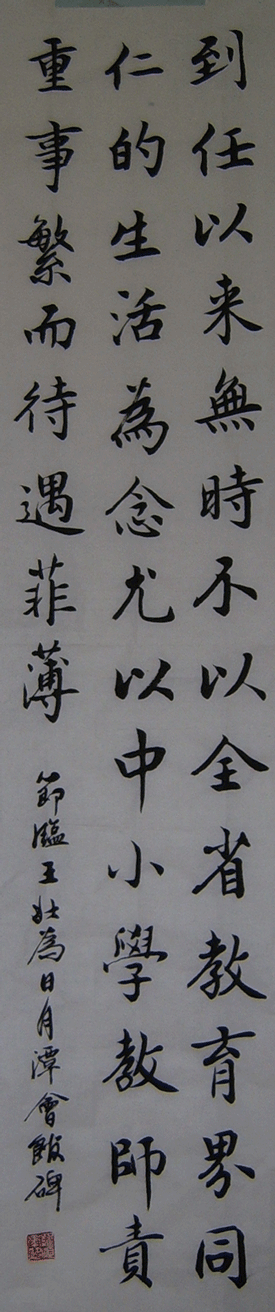 到任以来無時不以全省教育界同
仁的生活為念尤以中小學教師責
重事繁而待遇菲薄
節臨王壯為日月潭會館碑